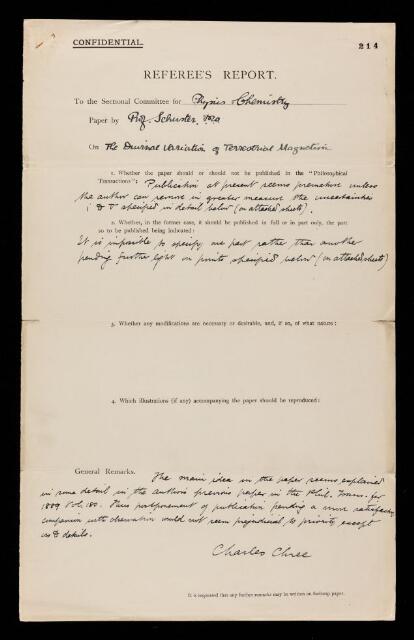 CONFIDENTIAL.
214
REFEREE'S REPORT.
To the Sectional Committee for Physics & Chemistry
Paper by Prof. Schuster
On The Diurnal Variation of Terrestrial Magnetism
1. Whether the paper should or should not be published in the "Philosophical
Transactions": Publication at present seems premature unless
the author can remove in greater measure the uncertainties
specified in detail below (on attached sheet).
2. Whether, in the former case, it should be published in full or in part only, the part
so to be published being indicated:
It is impossible to specify one part rather than another
pending further light on points specified below (on attached sheet)
3. Whether any modifications are necessary or desirable, and, if so, of what nature:
4. Which illustrations (if any) accompanying the paper should be reproduced:
General Remarks.
The main idea in the paper seems explained
in some detail in the author's previous paper in the Phil. Trans. for
1889 Vol. 180. Thus postponement of publication pending a more satisfactory
comparison with observation would not seem prejudicial to priority except
as to details.
Charles Chree
It is requested that any further remarks may be written on foolscap paper.